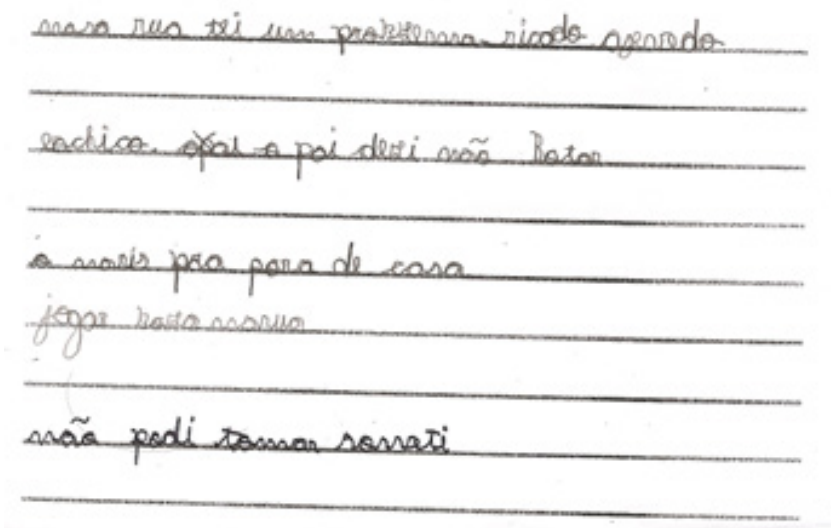 nasa rua tei um problema ricado azevedo
eachica. a pai dexi não Botar
o nariz pra para de casa
jogar bola narua
não podi tomar sorvati